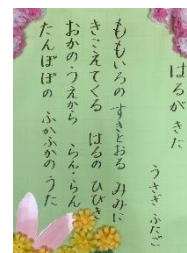 はるが きた
うさぎ ふたご
ももいろの すきとおる みみに
きこえてくる はるの ひびき
おかのうえから らん・らん
たんぽぽの ふかふかの うた